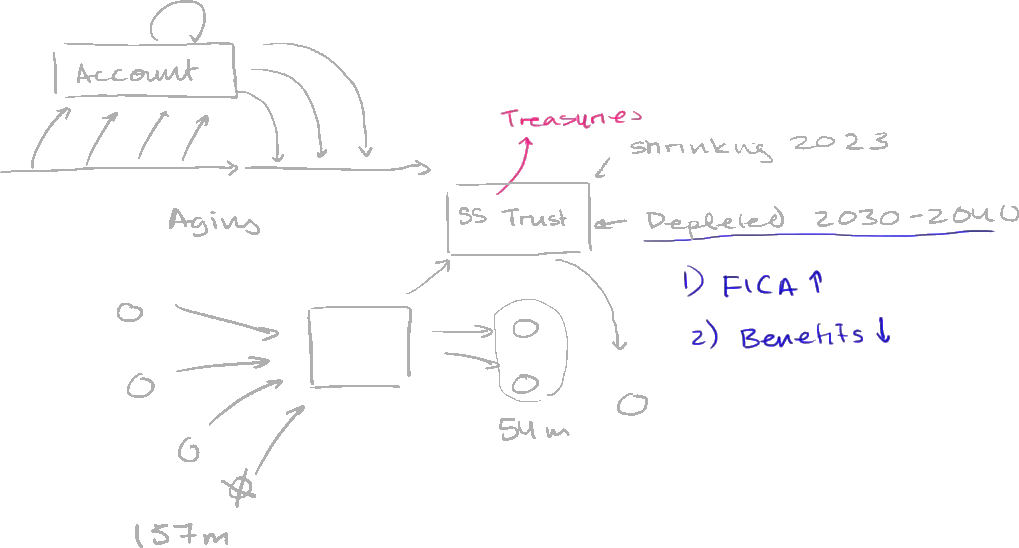 Account
Treasuries
shrinking 2023
Aging
SS Trust
Depleted 2030-2040
1) FICA ↑
2) Benefits ↓
54m
157m